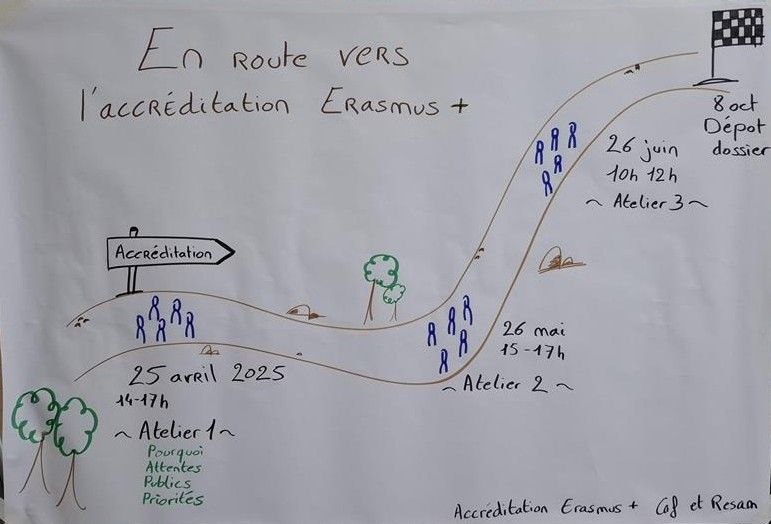 En route vers
l'accréditation Erasmus +
8 oct
Dépôt
dossier
26 juin
10h 12h
~ Atelier 3 ~
Accréditation
26 mai
15-17h
~ Atelier 2 ~
25 avril 2025
14-17h
~ Atelier 1 ~
Pourquoi
Attentes
Publics
Priorités
Accréditation Erasmus + Cof et Resam